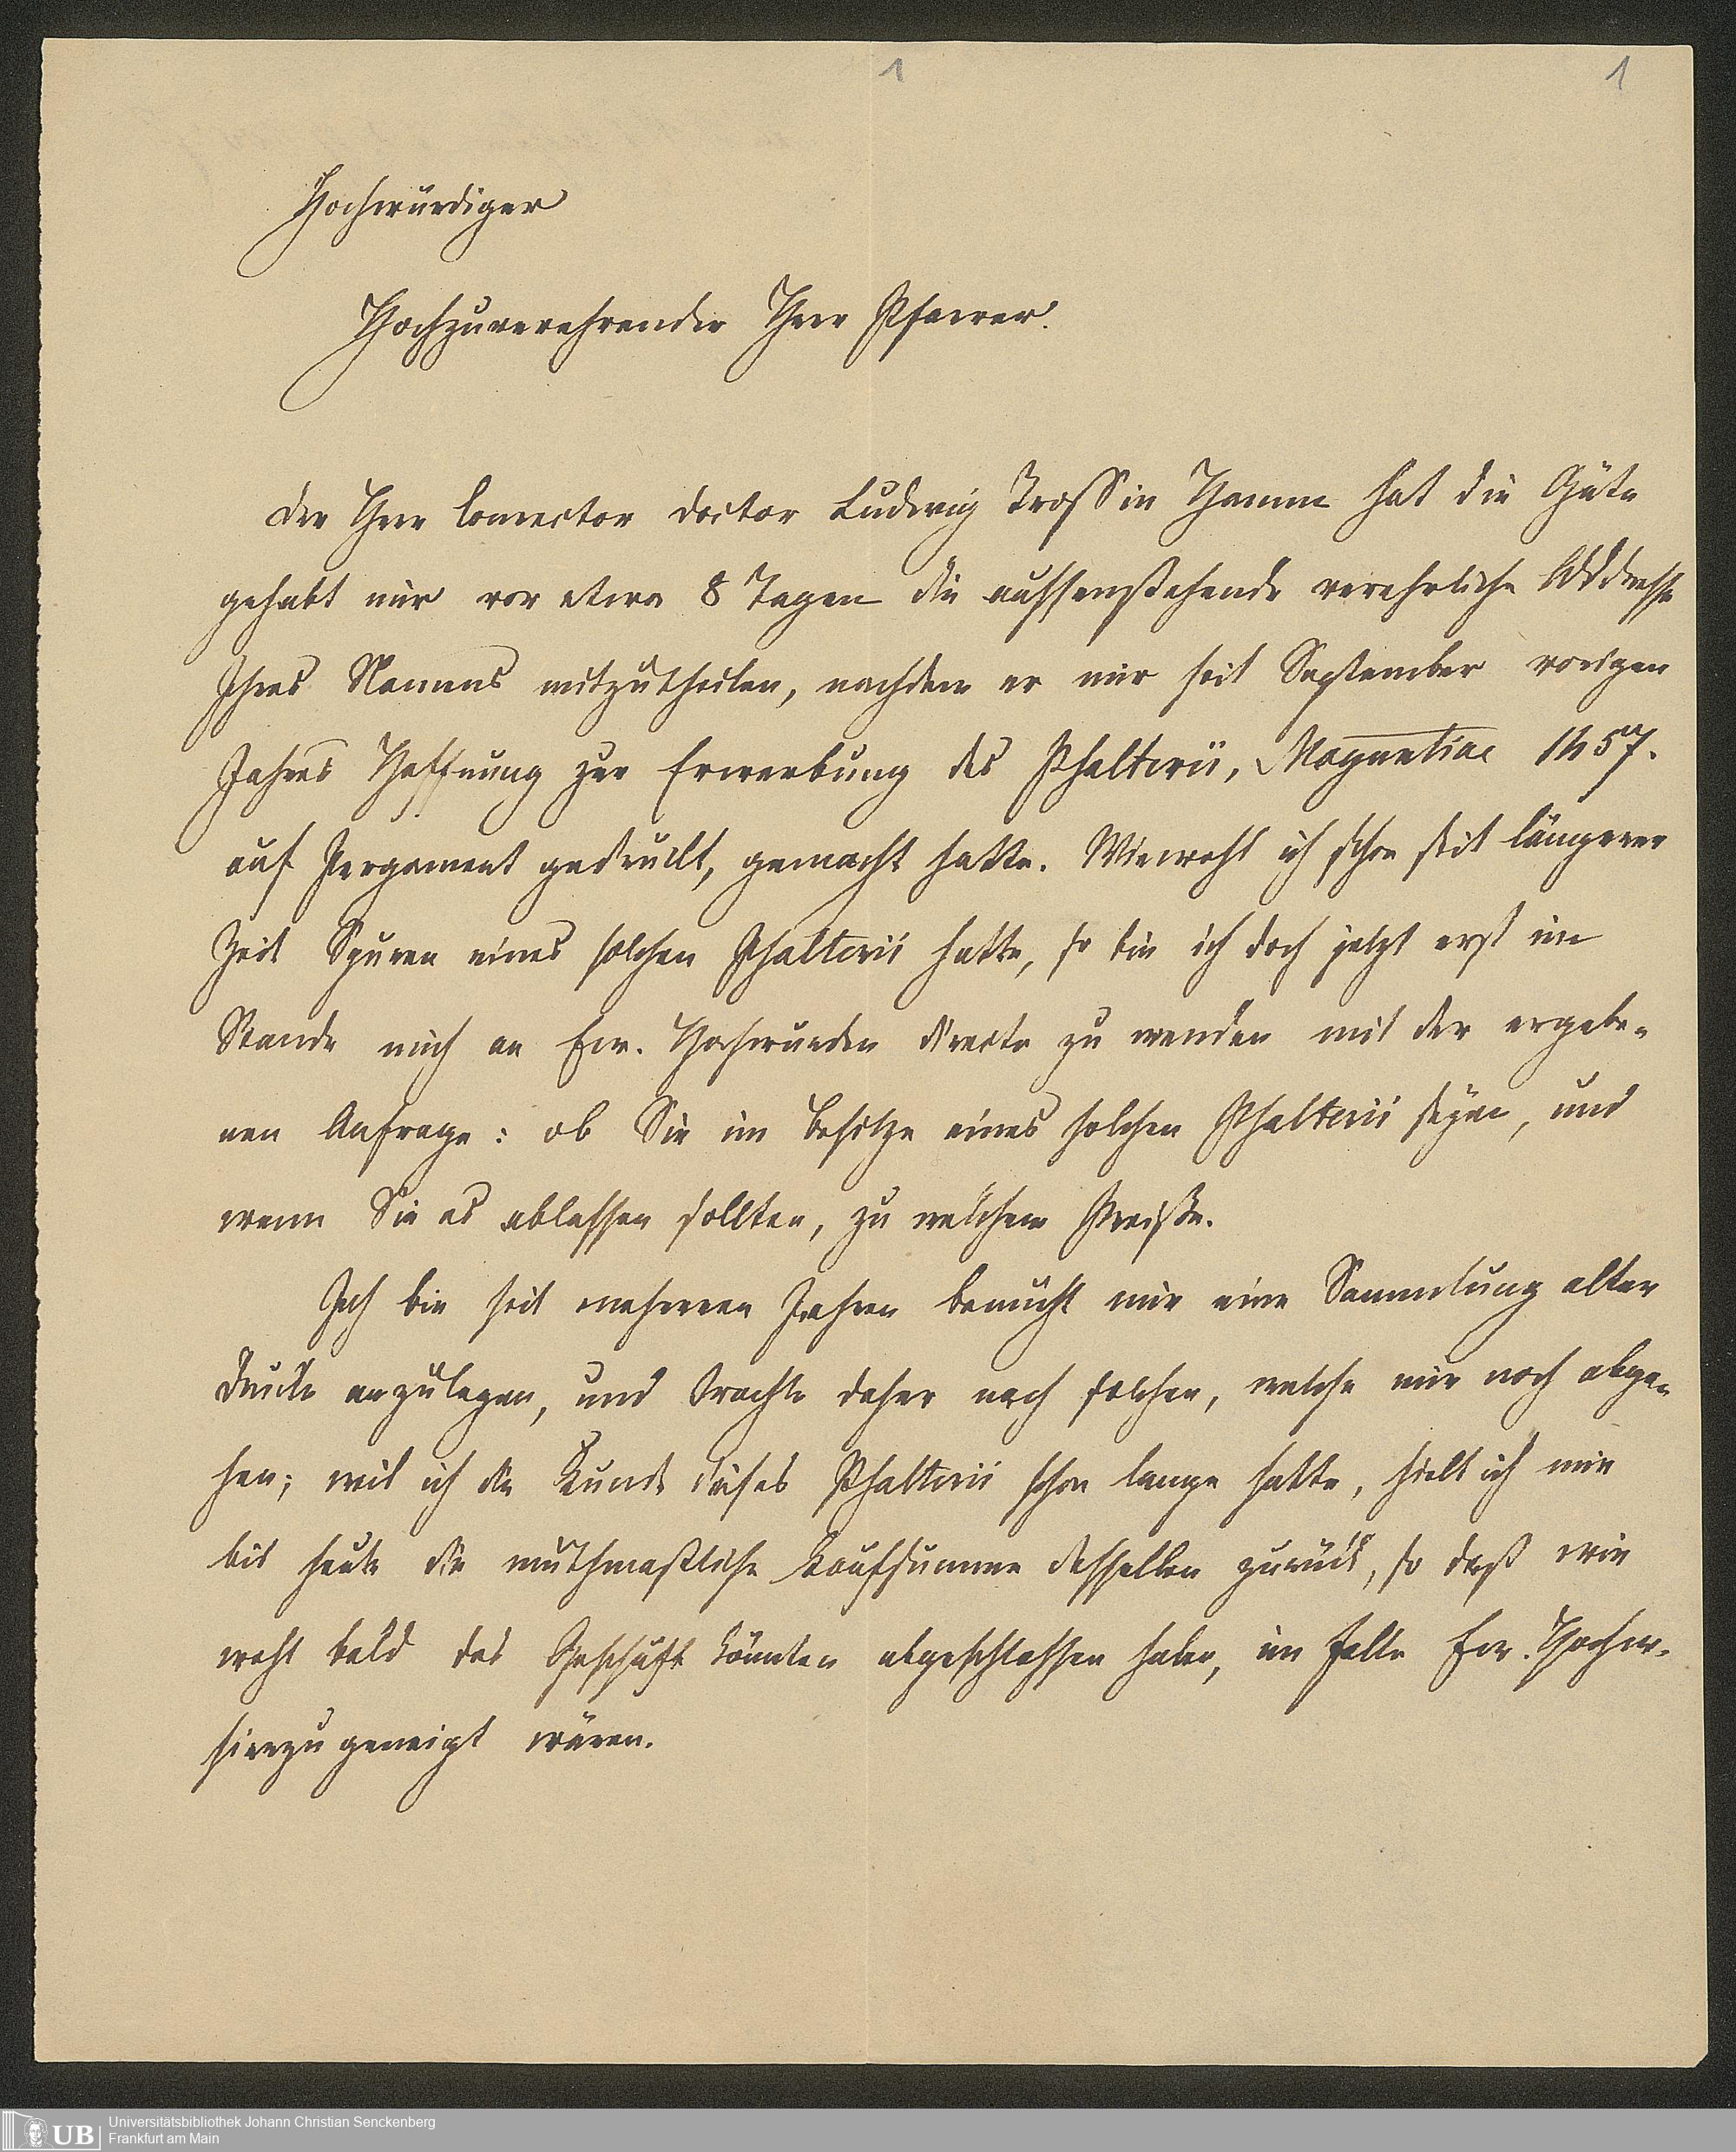 1 1
Hochwürdiger
Hochzuverehrender Herr Pfarrer.
Der Herr Conrector Doctor Ludwig Tross in Hamm hat die Güte
gehabt mir vor etwa 8 Tagen die aussenstehende verehrliche Adddresse
Ihres Namens mitzutheilen, nachdem er mir seit September vorigen
Jahres Hoffnung zur Erwerbung des Psalterii, Moguntiae 1457.
auf Pergament gedruckt, gemacht hatte. Wiewohl ich schon seit längerer
Zeit Spuren eines solchen Psalterii hatte, so bin ich doch jetzt erst im
Stande mich an Ew. Hochwürden directe zu wenden mit der ergebe-
nen Anfrage: ob Sie im Besitze eines solchen Psalterii seyen, und
wenn Sie es ablassen sollten, zu welchem Preiße.
Ich bin seit mehreren Jahren bemüht mir eine Sammlung alter
Drucke anzulegen, und trachte daher nach solchen, welche mir noch abge-
hen; weil ich die Kunde dieses Psalterii schon lange hatte, hielt ich mir
bis heute die muthmaßliche Kaufsumme desselben zurück, so daß wir
wohl bald das Geschäft könnten abgeschlossen haben, im Falle Ew. Hochw.
hierzu geneigt wären.
UB Universitätsbibliothek Johann Christian Senckenberg
Frankfurt am Main